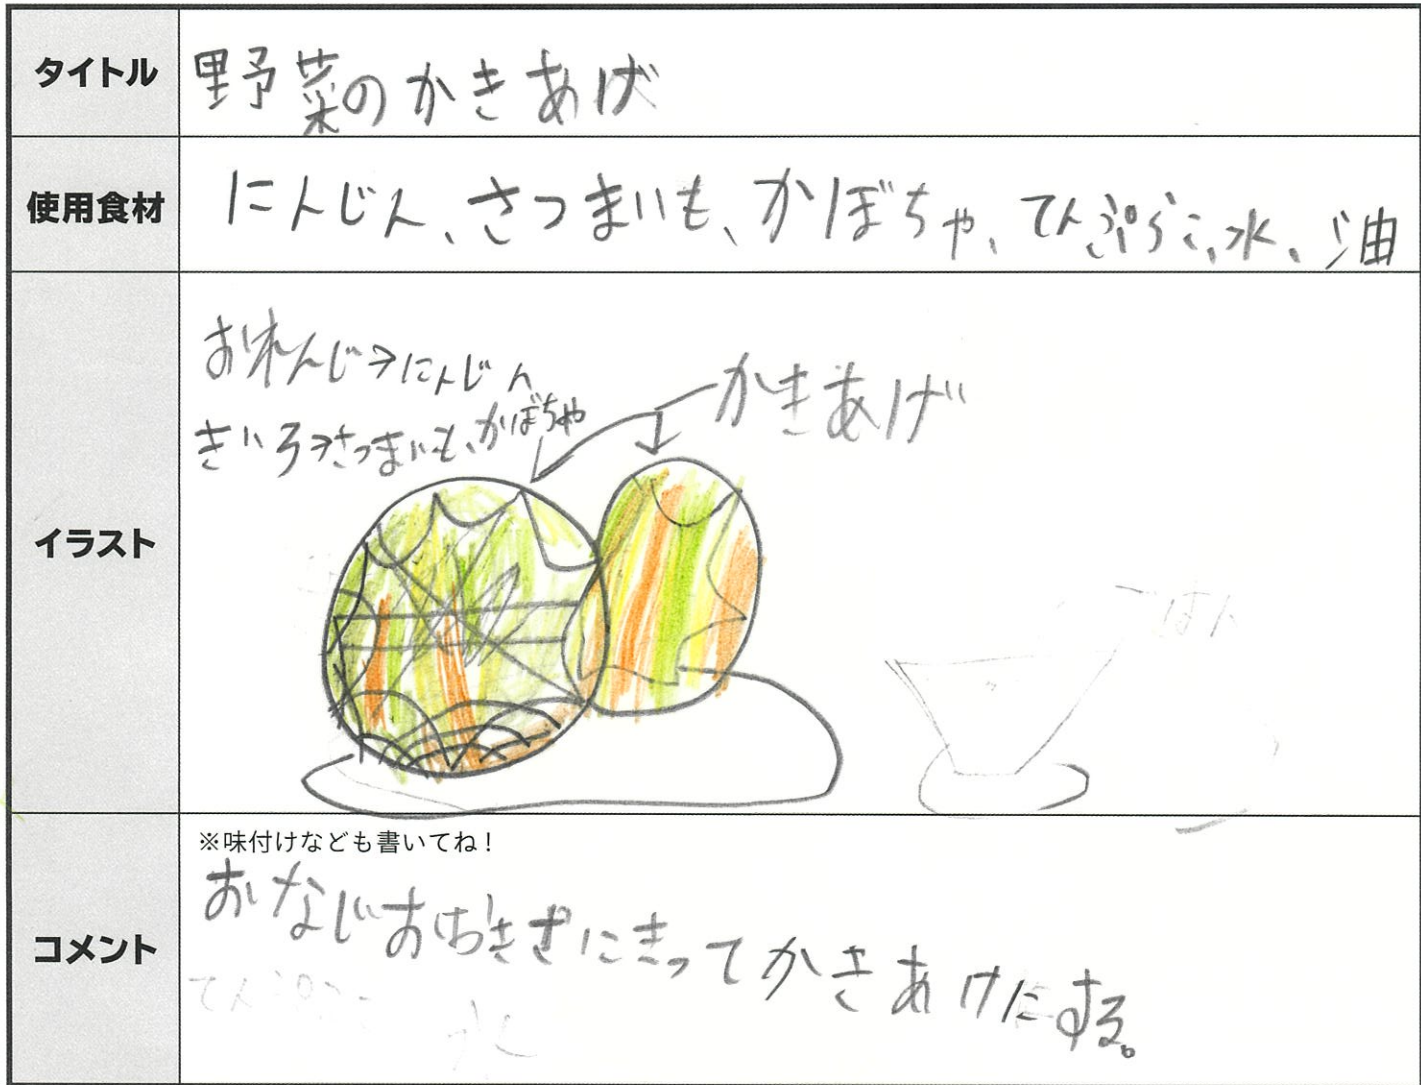 タイトル
野菜のかきあげ
使用食材
にんじん、さつまいも、かぼちゃ、てんぷらこ、水、油
イラスト
おれんじ→にんじん
きいろ→さつまいも、かぼちゃ
かきあげ
ごはん
コメント
※味付けなども書いてね！
おなじおおきさにきってかきあげにする。
水